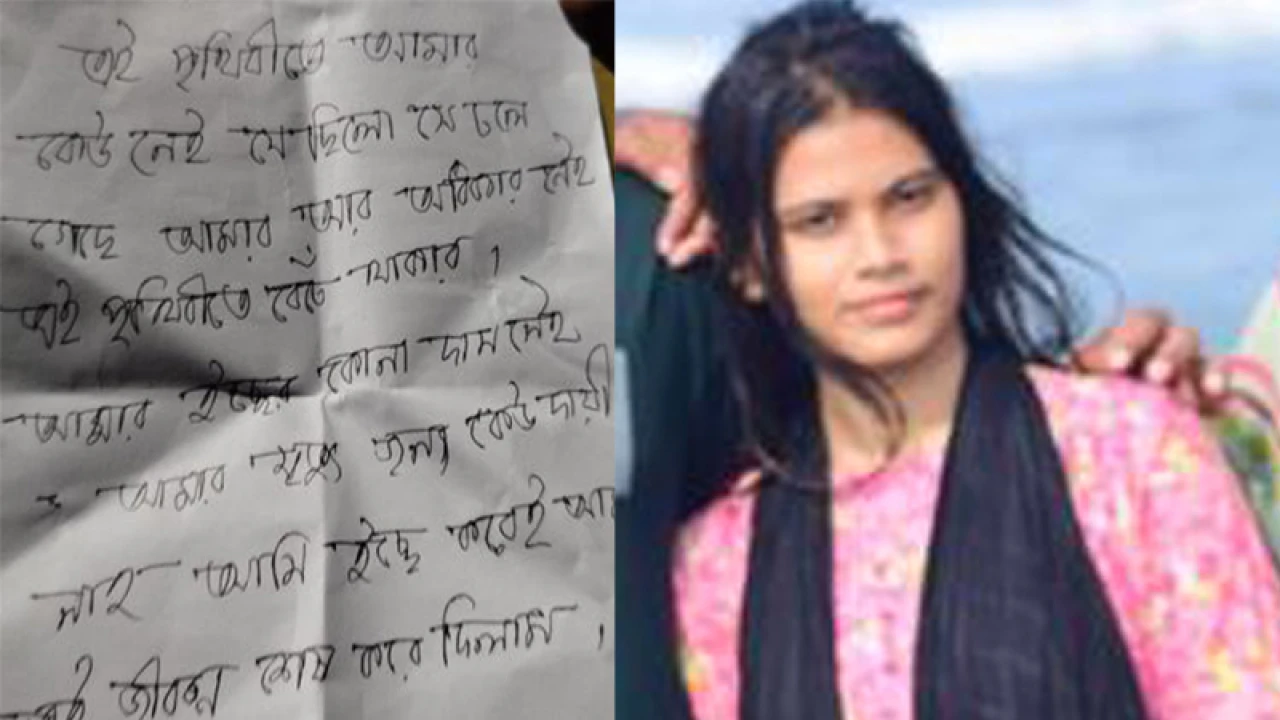 এই পৃথিবীতে আমার
কেউ নেই যে ছিলো সে চলে
গেছে আমার আর অধিকার নেই
এই পৃথিবীতে বেচেঁ থাকার ।
আমার ইচ্ছের কোনো দাম নেই
আমার মৃত্যুর জন্য কেউ দায়ী
নাই আমি ইচ্ছে করেই
জীবন শেষ করে দিলাম ।